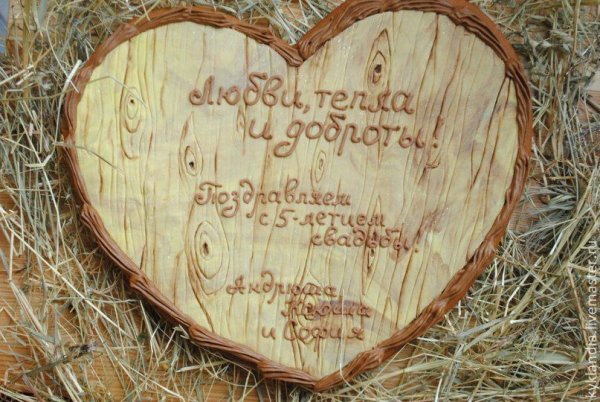 Любви, тепла
и доброты!
Поздравляем
с 5-летием
свадьбы!
Андрюша
и София
kvitlandia.livemaster.ru